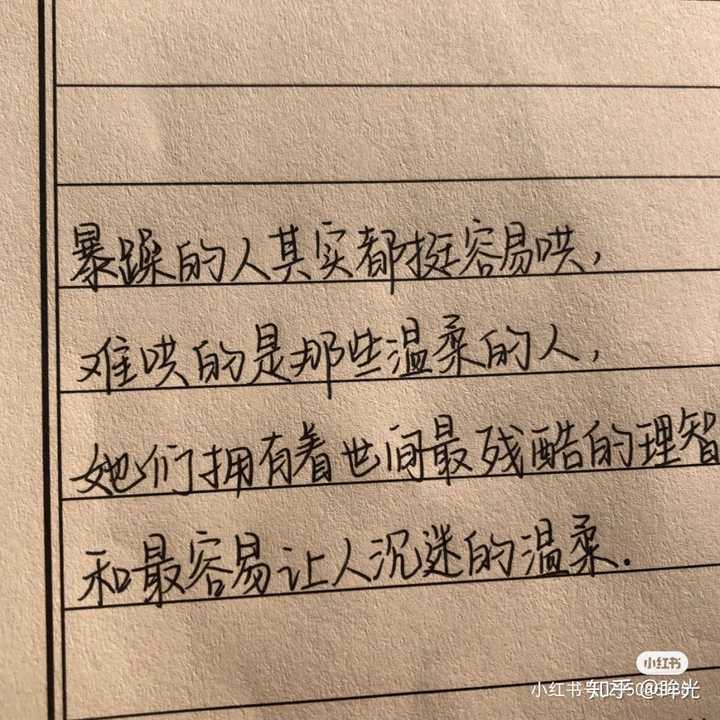 暴躁的人其实都挺容易哄，
难哄的是那些温柔的人，
她们拥有着世间最残酷的理智
和最容易让人沉迷的温柔.
小红书
小红书号
知乎 @眸光